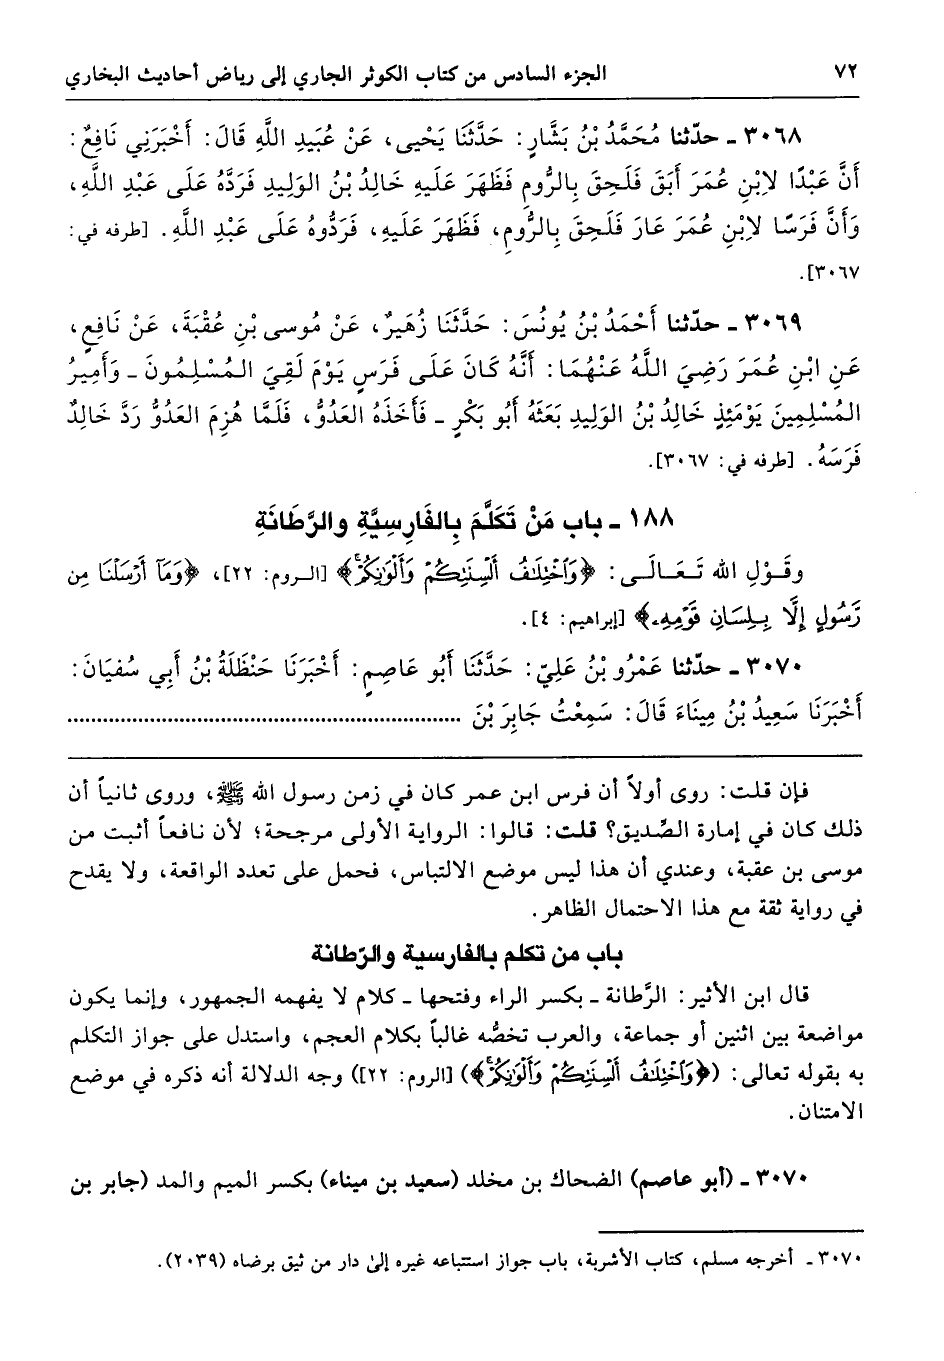 ٧٢ الجزء السادس من كتاب الكوثر الجاري إلى رياض أحاديث البخاري
٣٠٦٨ ـ حدّثنا مُحَمَّدُ بْنُ بَشَّارٍ: حَدَّثَنَا يَحْيى، عَنْ عُبَيدِ اللَّهِ قَالَ: أَخْبَرَنِي نَافِعٌ:
أَنَّ عَبْدًا لاِبْنِ عُمَرَ أَبَقَ فَلَحِقَ بِالرُّومِ فَظَهَرَ عَلَيهِ خَالِدُ بْنُ الوَلِيدِ فَرَدَّهُ عَلَى عَبْدِ اللَّهِ،
وَأَنَّ فَرَسًا لاِبْنِ عُمَرَ عَارَ فَلَحِقَ بِالرُّومِ، فَظَهَرَ عَلَيهِ، فَرَدُّوهُ عَلَى عَبْدِ اللَّهِ. [طرفه في:
٣٠٦٧].
٣٠٦٩ ـ حدّثنا أَحْمَدُ بْنُ يُونُسَ: حَدَّثَنَا زُهَيرٌ، عَنْ مُوسى بْنِ عُقْبَةَ، عَنْ نَافِعٍ،
عَنِ ابْنِ عُمَرَ رَضِيَ اللَّهُ عَنْهُمَا: أَنَّهُ كَانَ عَلَى فَرَسٍ يَوْمَ لَقِيَ المُسْلِمُونَ ـ وَأَمِيرُ
المُسْلِمِينَ يَوْمَئِذٍ خَالِدُ بْنُ الوَلِيدِ بَعَثَهُ أَبُو بَكْرٍ ـ فَأَخَذَهُ العَدُوُّ، فَلَمَّا هُزِمَ العَدُوُّ رَدَّ خَالِدٌ
فَرَسَهُ. [طرفه في: ٣٠٦٧].
١٨٨ ـ باب مَنْ تَكَلَّمَ بِالفَارِسِيَّةِ والرَّطَانَةِ
وقَوْلِ الله تَعَالَى: ﴿وَٱخْتِلَٰفُ أَلْسِنَتِكُمْ وَأَلْوَٰنِكُمْ﴾ [الروم: ٢٢]، ﴿وَمَآ أَرْسَلْنَا مِن
رَّسُولٍ إِلَّا بِلِسَانِ قَوْمِهِۦ﴾ [إبراهيم: ٤].
٣٠٧٠ ـ حدّثنا عَمْرُو بْنُ عَلِيٍّ: حَدَّثَنَا أَبُو عَاصِمٍ: أَخْبَرَنَا حَنْظَلَةُ بْنُ أَبِي سُفيَانَ:
أَخْبَرَنَا سَعِيدُ بْنُ مِينَاءَ قَالَ: سَمِعْتُ جَابِرَ بْنَ ..................................................................
فإن قلت: روى أولاً أن فرس ابن عمر كان في زمن رسول الله ﷺ، وروى ثانياً أن
ذلك كان في إمارة الصِّديق؟ قلت: قالوا: الرواية الأولى مرجحة؛ لأن نافعاً أثبت من
موسى بن عقبة، وعندي أن هذا ليس موضع الالتباس، فحمل على تعدد الواقعة، ولا يقدح
في رواية ثقة مع هذا الاحتمال الظاهر.
باب من تكلم بالفارسية والرّطانة
قال ابن الأثير: الرَّطانة ـ بكسر الراء وفتحها ـ كلام لا يفهمه الجمهور، وإنما يكون
مواضعة بين اثنين أو جماعة، والعرب تخصُّه غالباً بكلام العجم، واستدل على جواز التكلم
به بقوله تعالى: (﴿وَٱخْتِلَٰفُ أَلْسِنَتِكُمْ وَأَلْوَٰنِكُمْ﴾) [الروم: ٢٢]) وجه الدلالة أنه ذكره في موضع
الامتنان.
٣٠٧٠ ـ (أبو عاصم) الضحاك بن مخلد (سعيد بن ميناء) بكسر الميم والمد (جابر بن
٣٠٧٠ ـ أخرجه مسلم، كتاب الأشربة، باب جواز استتباعه غيره إلىٰ دار من ثيق برضاه (٢٠٣٩).